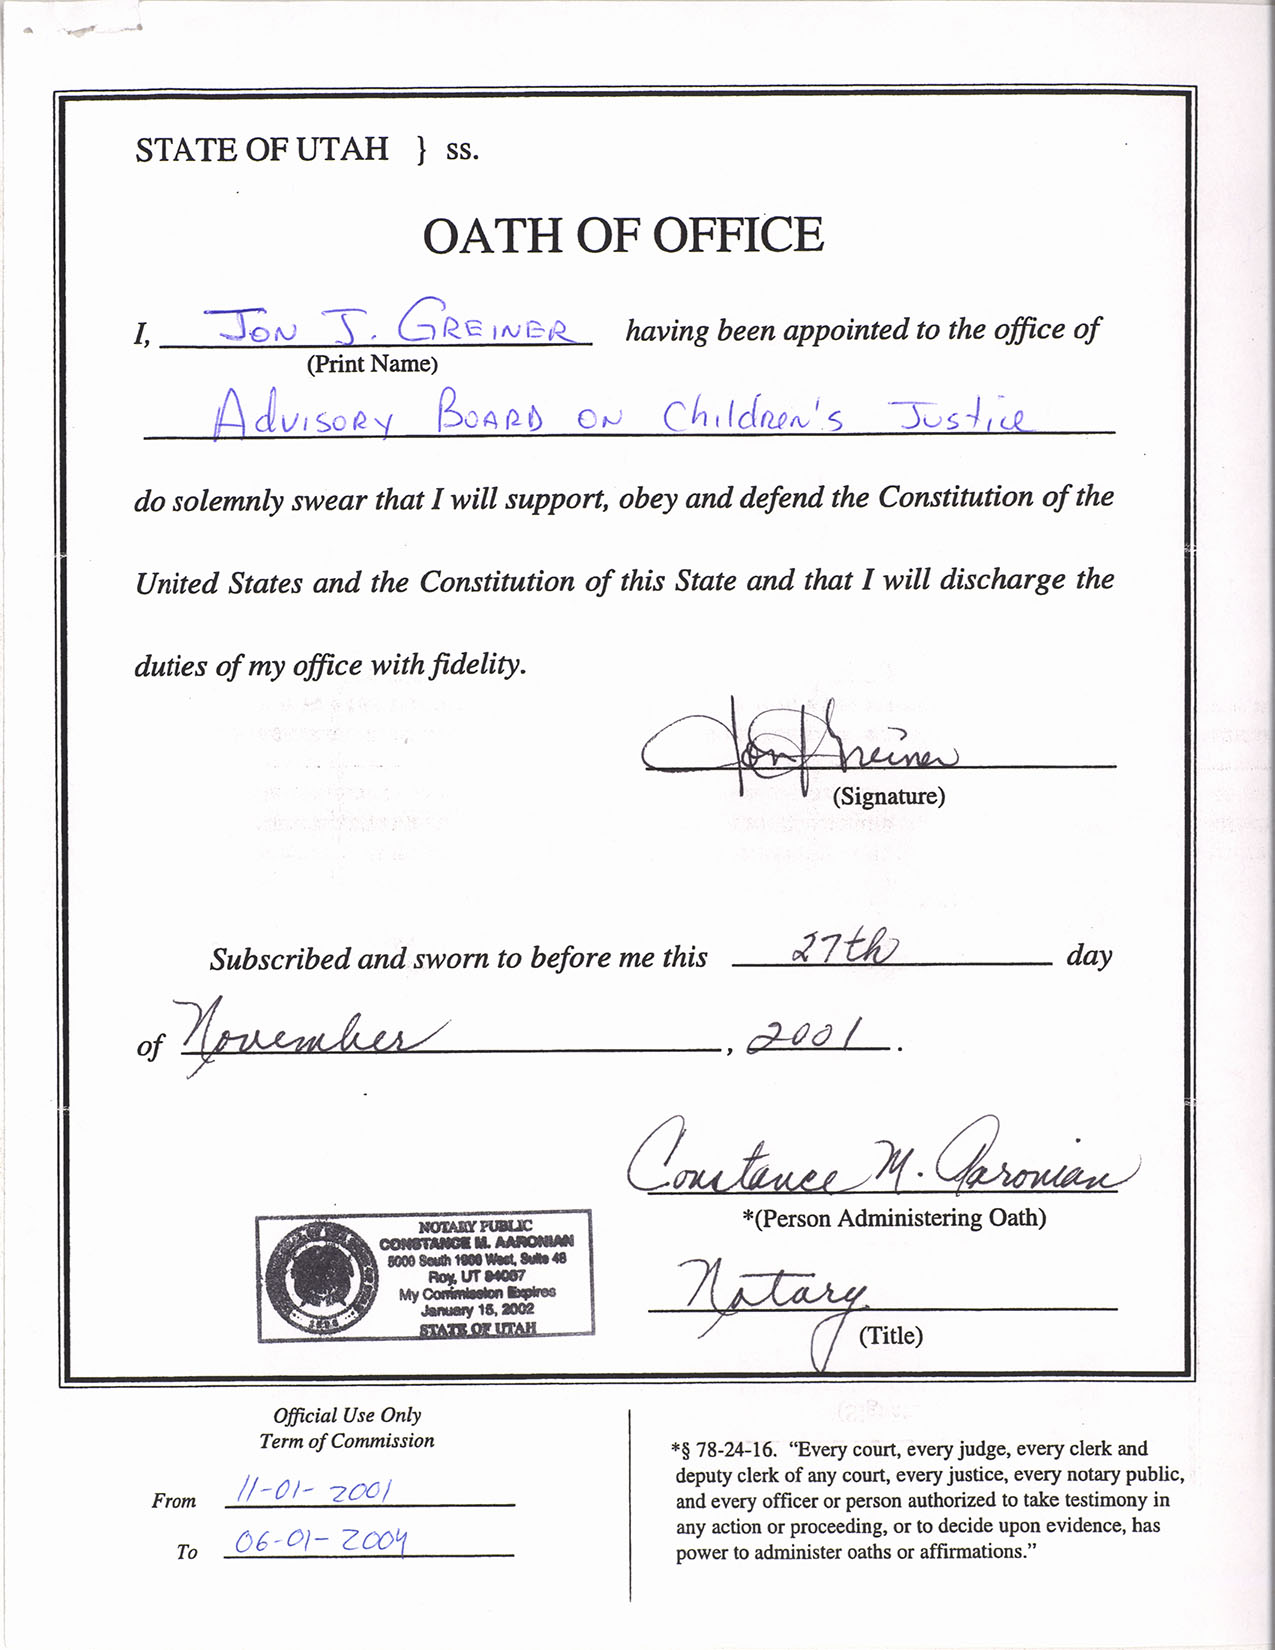 STATE OF UTAH } ss.
OATH OF OFFICE
I, JON J. GREINER having been appointed to the office of
(Print Name)
ADVISORY BOARD ON Children's Justice
do solemnly swear that I will support, obey and defend the Constitution of the
United States and the Constitution of this State and that I will discharge the
duties of my office with fidelity.
Jon J Greiner
(Signature)
Subscribed and sworn to before me this 27th day
of November, 2001.
Constance M. Aaronian
*(Person Administering Oath)
NOTARY PUBLIC
CONSTANCE M. AARONIAN
5000 South 1900 West, Suite 48
Roy, UT 84067
My Commission Expires
January 15, 2002
STATE OF UTAH
1896
Notary
(Title)
Official Use Only
Term of Commission
From 11-01-2001
To 06-01-2004
*§ 78-24-16. “Every court, every judge, every clerk and
deputy clerk of any court, every justice, every notary public,
and every officer or person authorized to take testimony in
any action or proceeding, or to decide upon evidence, has
power to administer oaths or affirmations.”